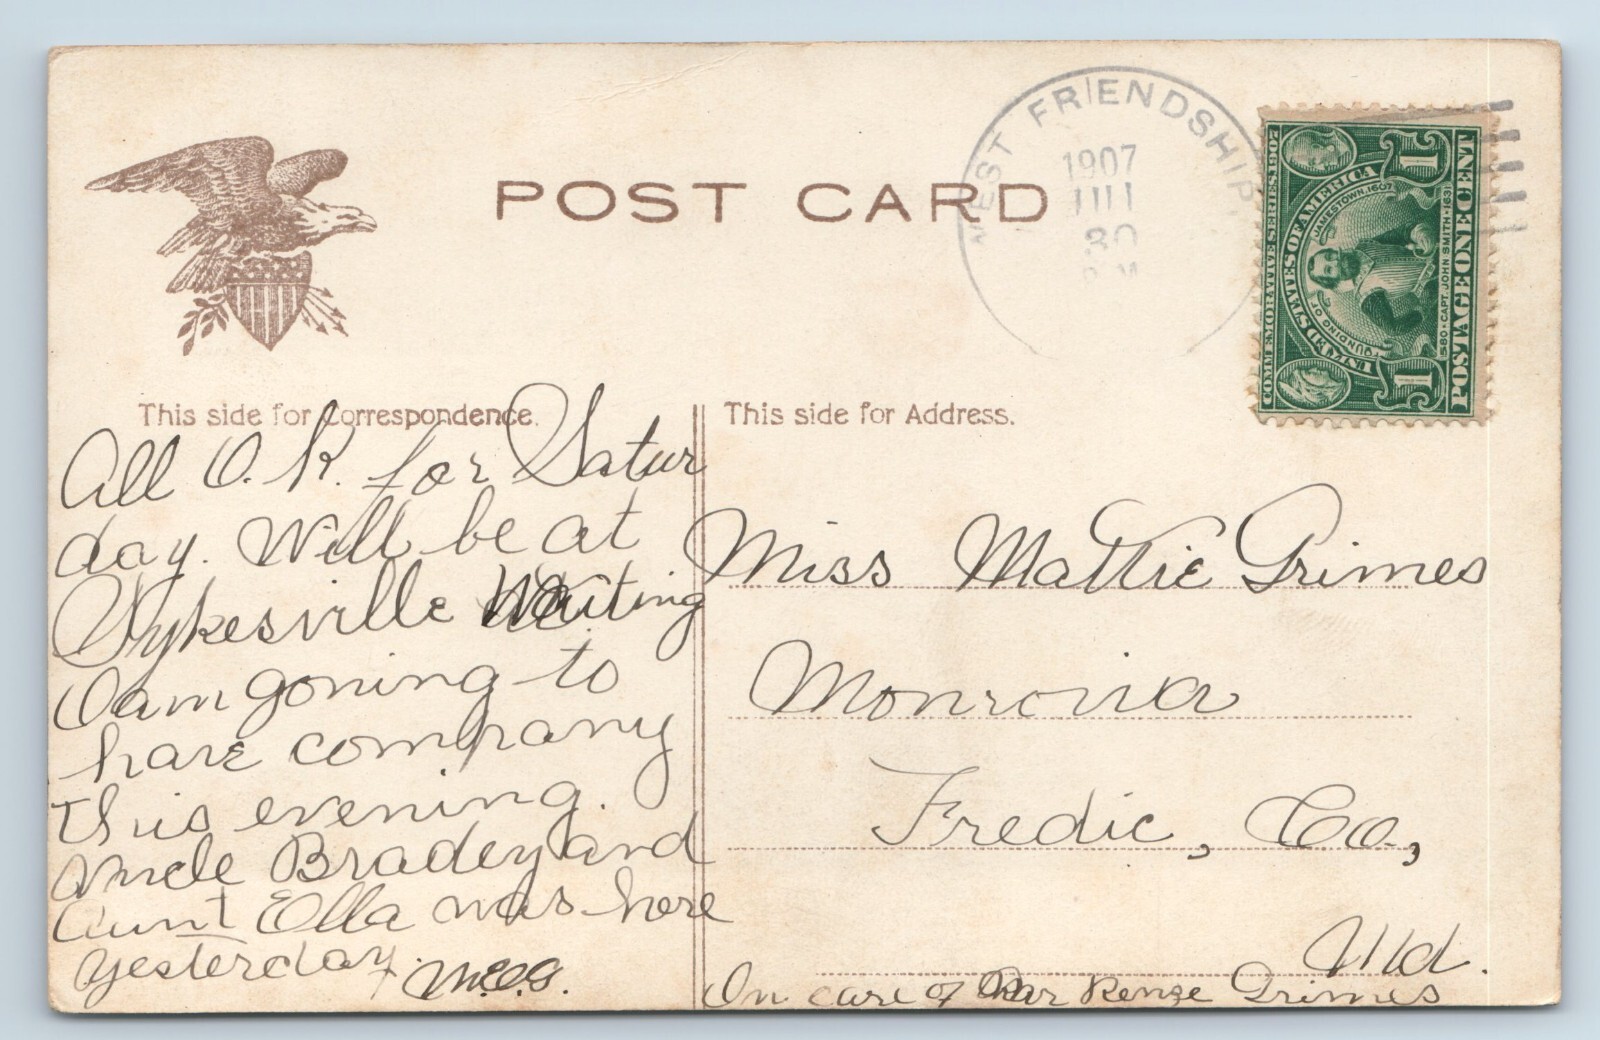 POST CARD
WEST FRIENDSHIP
1907
30
COMMEMORATIVE SERIES 1907
UNITED STATES OF AMERICA
FOUNDING OF JAMESTOWN. 1607
1580 • CAPT. JOHN SMITH • 1631
POSTAGE ONE CENT
1 1
This side for Correspondence.
All O.K. for Satur
day. Will be at
Sykesville Waiting
I am goning to
have company
this evening.
Uncle Bradey and
Aunt Ella was here
yesterday.
M.E.G.
This side for Address.
Miss Mattie Grimes
Monrovia
Fredic, Co.,
Md.
In care of Renze Grimes